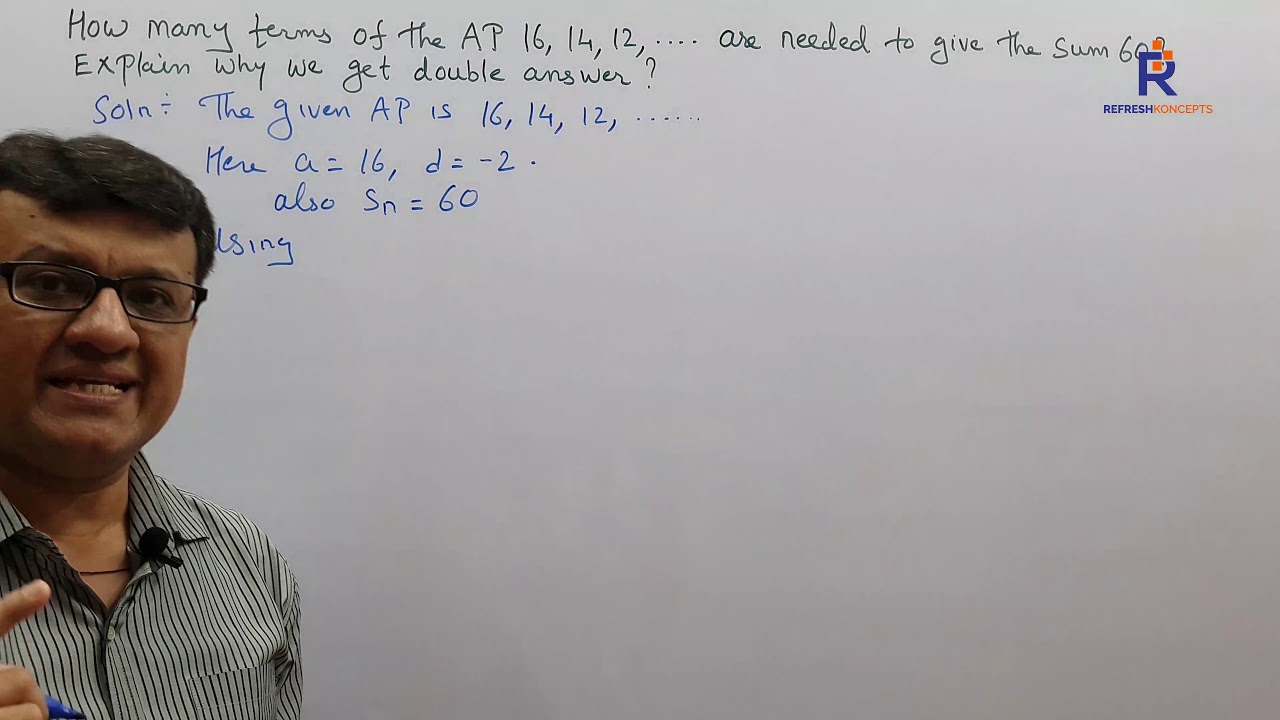 How many terms of the AP 16, 14, 12, .... are needed to give the sum 60?
Explain why we get double answer?
REFRESHKONCEPTS
Soln ÷ The given AP is 16, 14, 12, ......
Here a = 16, d = -2 .
also Sn = 60
Using